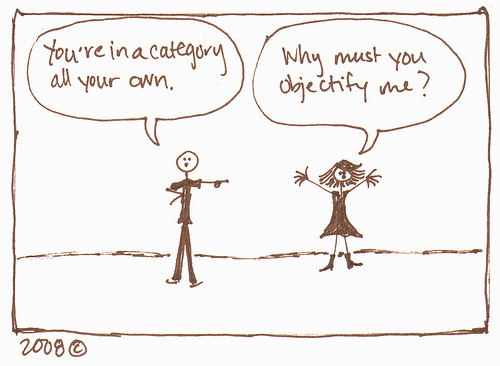 You're in a category
all your own.
Why must you
objectify me?
2008 ©